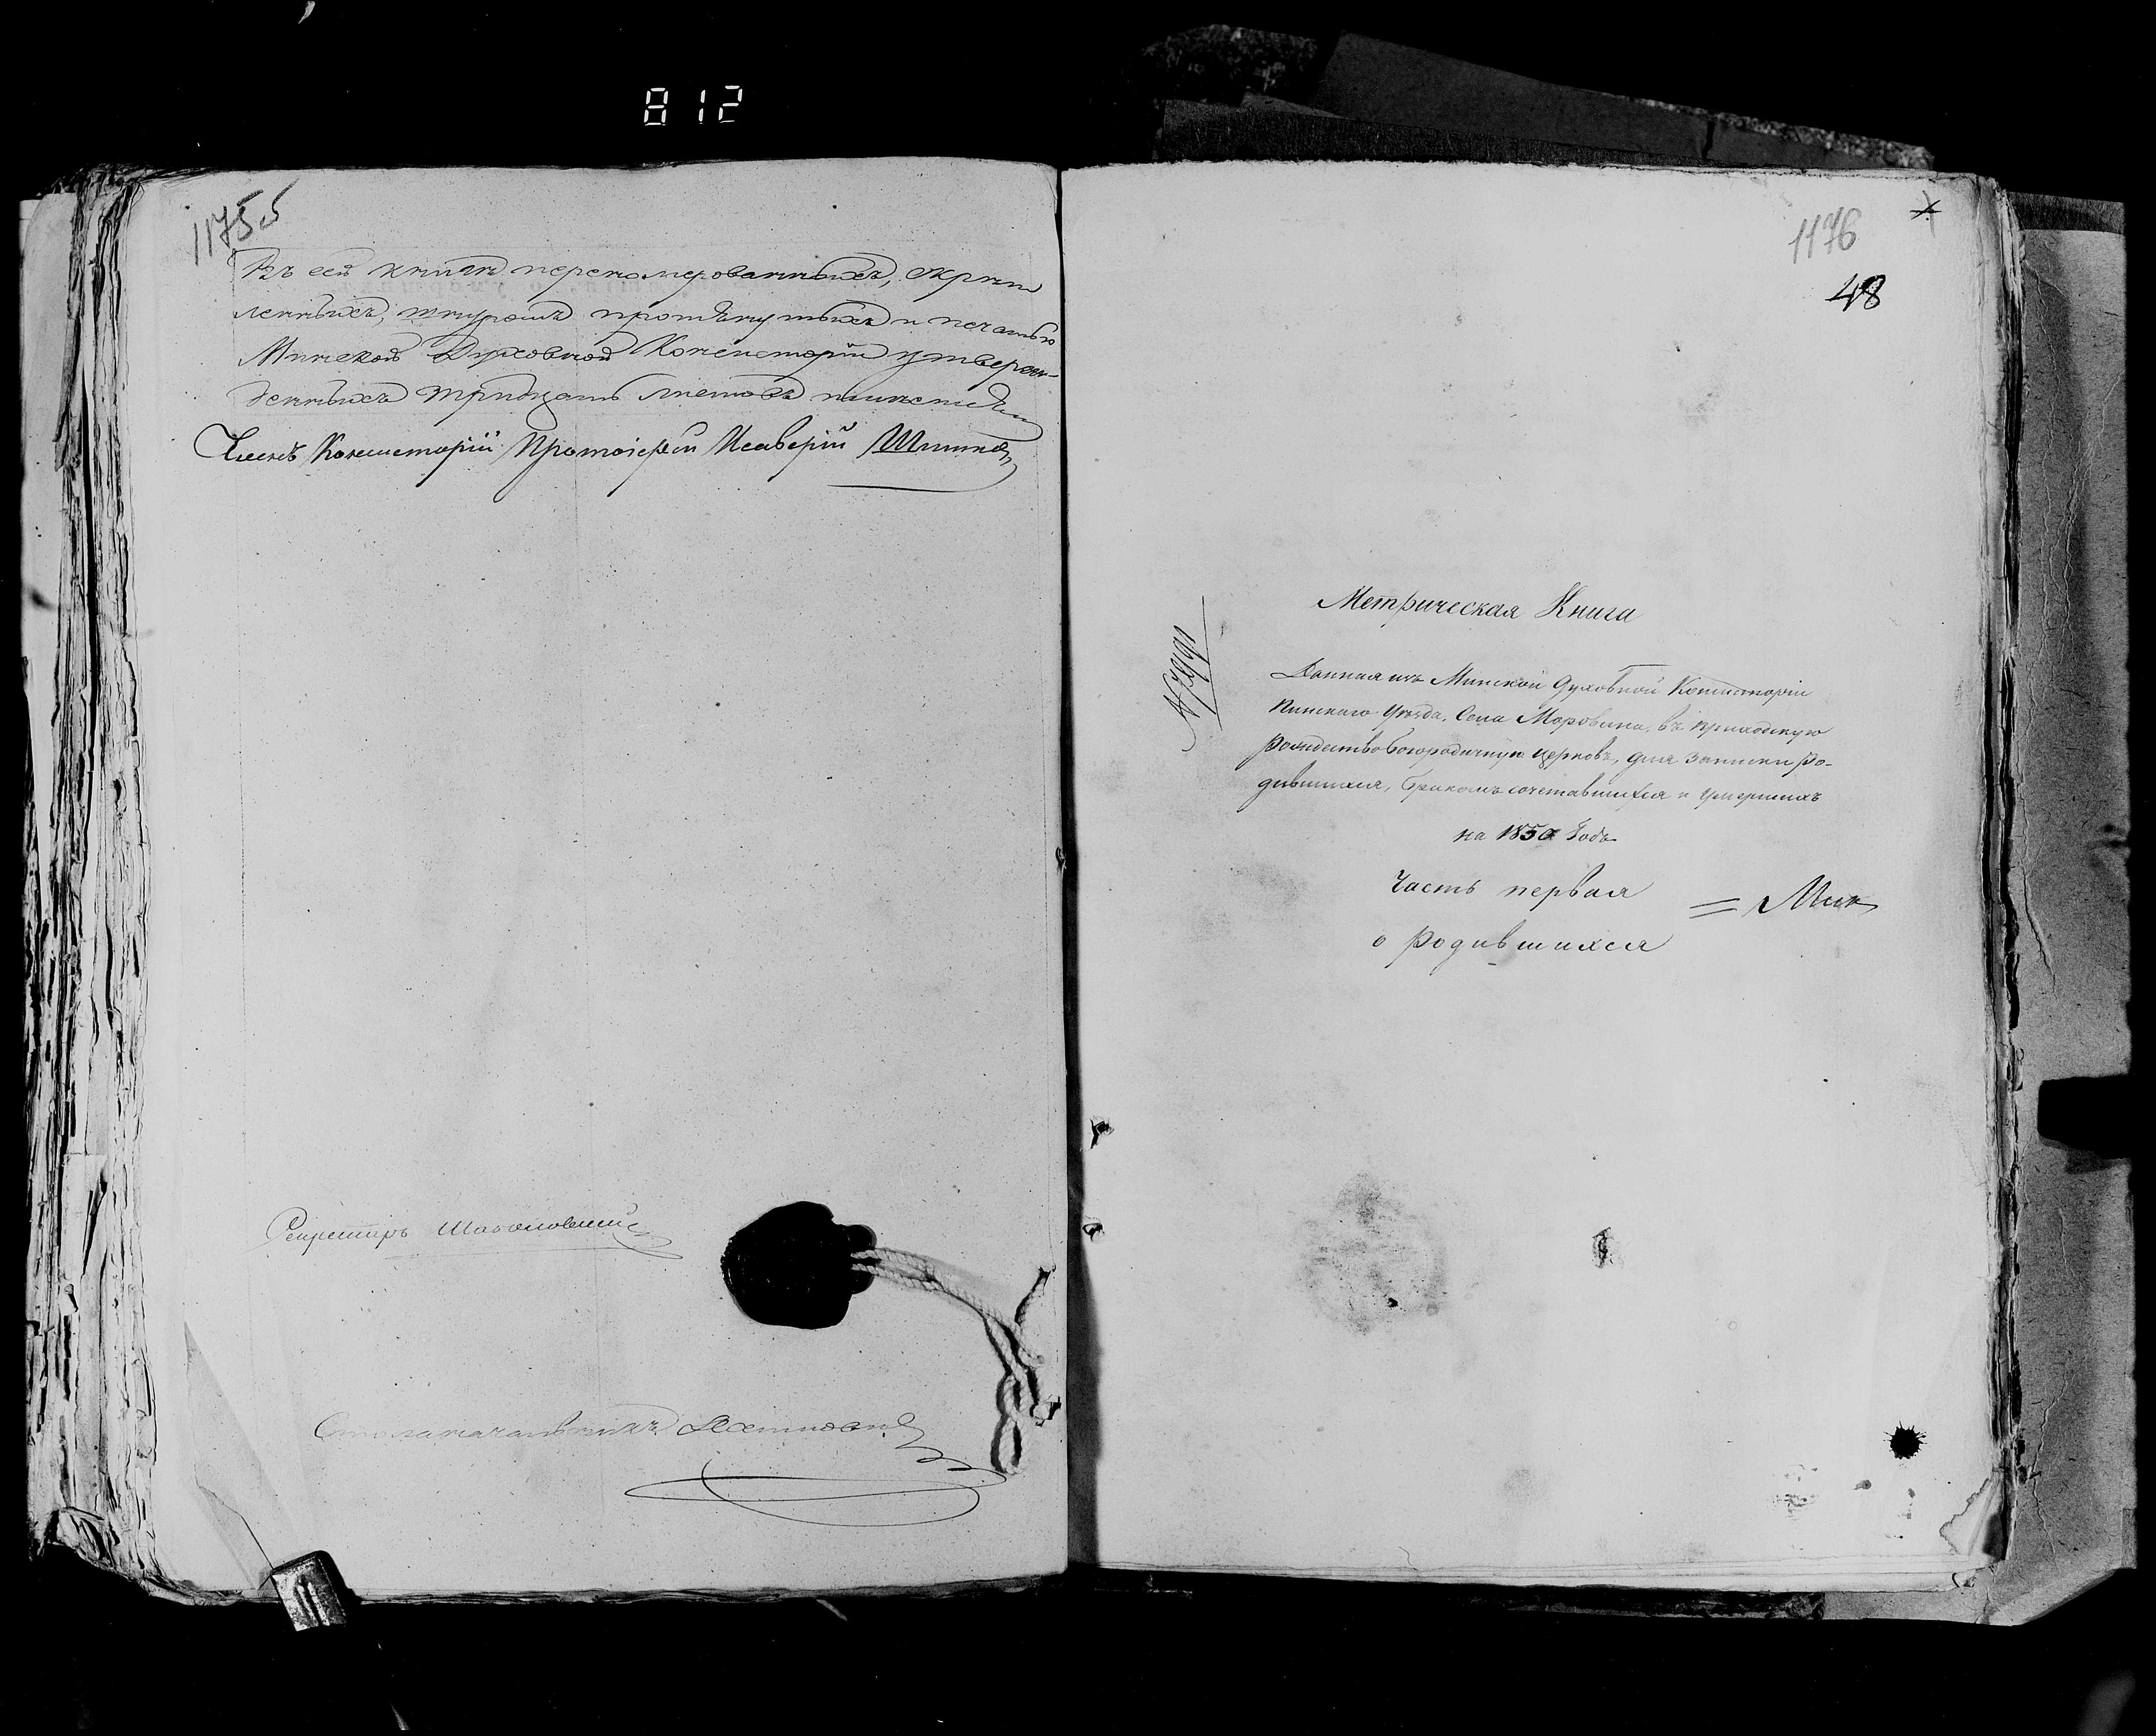 812
1175
Въ сей книгѣ перенумерованныхъ, скрѣп
ленныхъ, шнуромъ протянутыхъ и печатью
Минской Духовной Консисторіи утверж-
денныхъ тридцать листовъ
Членъ Консисторіи Протоіерей Ксаверій
Секретарь
Столоначальникъ
1176
48
Метрическая Книга
Данная изъ Минской Духовной Консисторіи
Пинскаго Уѣзда, Села Моровина, въ приходскую
Рождествобогородичную церковь, для записки ро-
дившихся, бракомъ сочетавшихся и умершихъ
на 1850 Годъ
Часть первая
= Мин
о родившихся